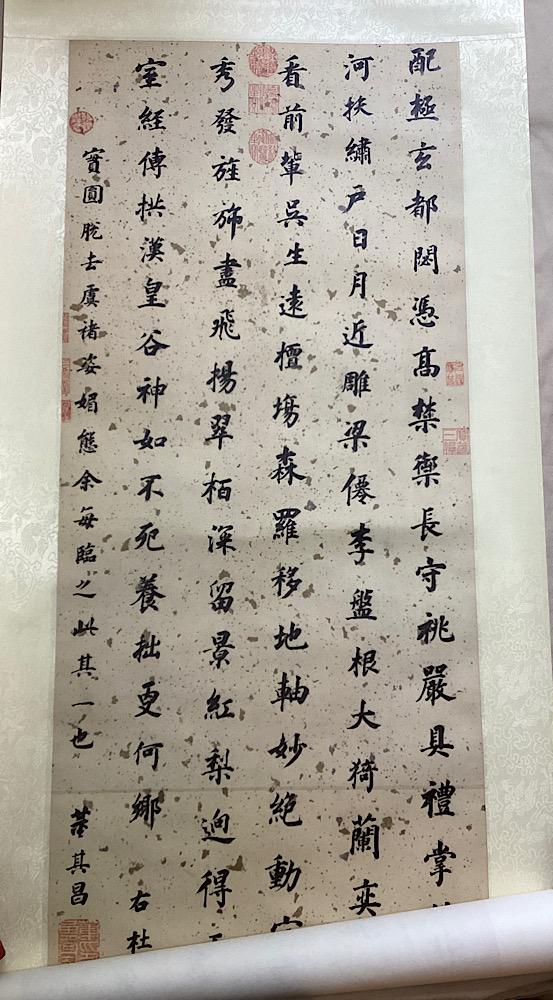 配極玄都閟憑高禁禦長守祧嚴具禮掌
河扶繡戶日月近雕梁僊李盤根大猗蘭奕
看前輩吳生遠擅場森羅移地軸妙絕動
秀發旌旆盡飛揚翠栢深留景紅梨逈得
室經傳拱漢皇谷神如不死養拙更何鄉 右杜
實圓脫去虞褚姿媚態余每臨之此其一也 董其昌